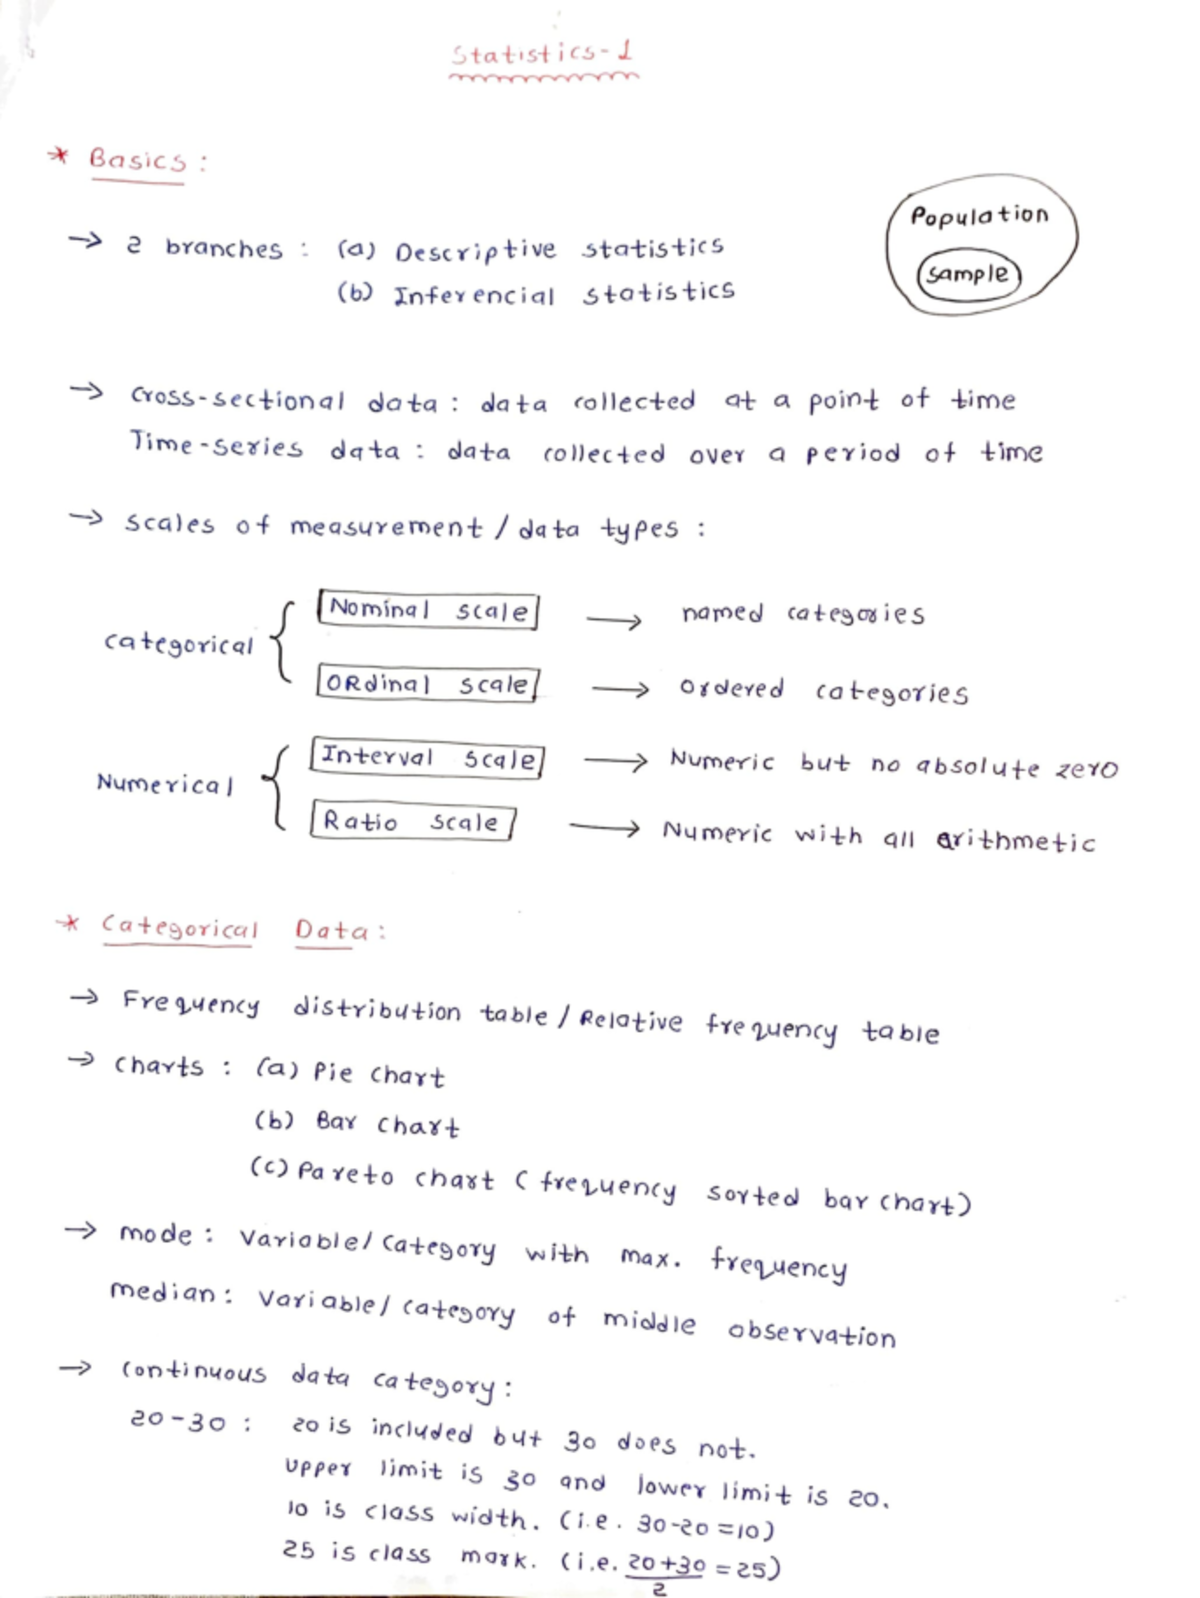 Statistics-1
* Basics :
Population
Sample
→ 2 branches : (a) Descriptive statistics
(b) Inferencial statistics
→ Cross-sectional data : data collected at a point of time
Time-series data : data collected over a period of time
→ scales of measurement / data types :
categorical { Nominal scale → named categories
ORdinal scale → Ordered categories
Numerical { Interval scale → Numeric but no absolute zero
Ratio scale → Numeric with all arithmetic
* Categorical Data :
→ Frequency distribution table / Relative frequency table
→ charts : (a) Pie chart
(b) Bar chart
(c) Pareto chart ( frequency sorted bar chart)
→ mode : Variable/ Category with max. frequency
median : Variable/ category of middle observation
→ Continuous data category :
20-30 : 20 is included but 30 does not.
Upper limit is 30 and lower limit is 20.
10 is class width. (i.e. 30-20 =10)
25 is class mark. (i.e. 20+30/2 = 25)